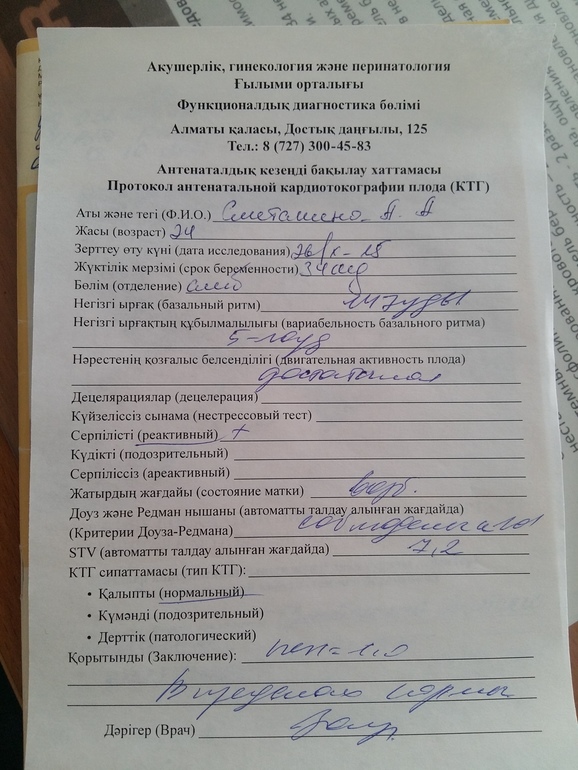 Акушерлік, гинекология және перинатология
Ғылыми орталығы
Функционалдық диагностика бөлімі
Алматы қаласы, Достық даңғылы, 125
Тел.: 8 (727) 300-45-83
Антенаталдық кезеңді бақылау хаттамасы
Протокол антенатальной кардиотокографии плода (КТГ)
Аты және тегі (Ф.И.О.) А. А
Жасы (возраст) 24
Зерттеу өту күні (дата исследования)
Жүктілік мерзімі (срок беременности) 34 нед
Бөлім (отделение)
Негізгі ырғақ (базальный ритм) 147 уд
Негізгі ырғақтың құбылмалылығы (вариабельность базального ритма)
Нәрестенің қозғалыс белсенділігі (двигательная активность плода)
достаточная
Децелярациялар (децелерация)
Күйзеліссіз сынама (нестрессовый тест)
Серпілісті (реактивный) +
Күдікті (подозрительный)
Серпіліссіз (ареактивный)
Жатырдың жағдайы (состояние матки)
Доуз және Редман нышаны (автоматты талдау алынған жағдайда)
(Критерии Доуза-Редмана) соблюдены
STV (автоматты талдау алынған жағдайда) 7,2
КТГ сипаттамасы (тип КТГ):
• Қалыпты (нормальный)
• Күмәнді (подозрительный)
• Дерттік (патологический)
Қорытынды (Заключение):
В пределах нормы
Дәрігер (Врач)